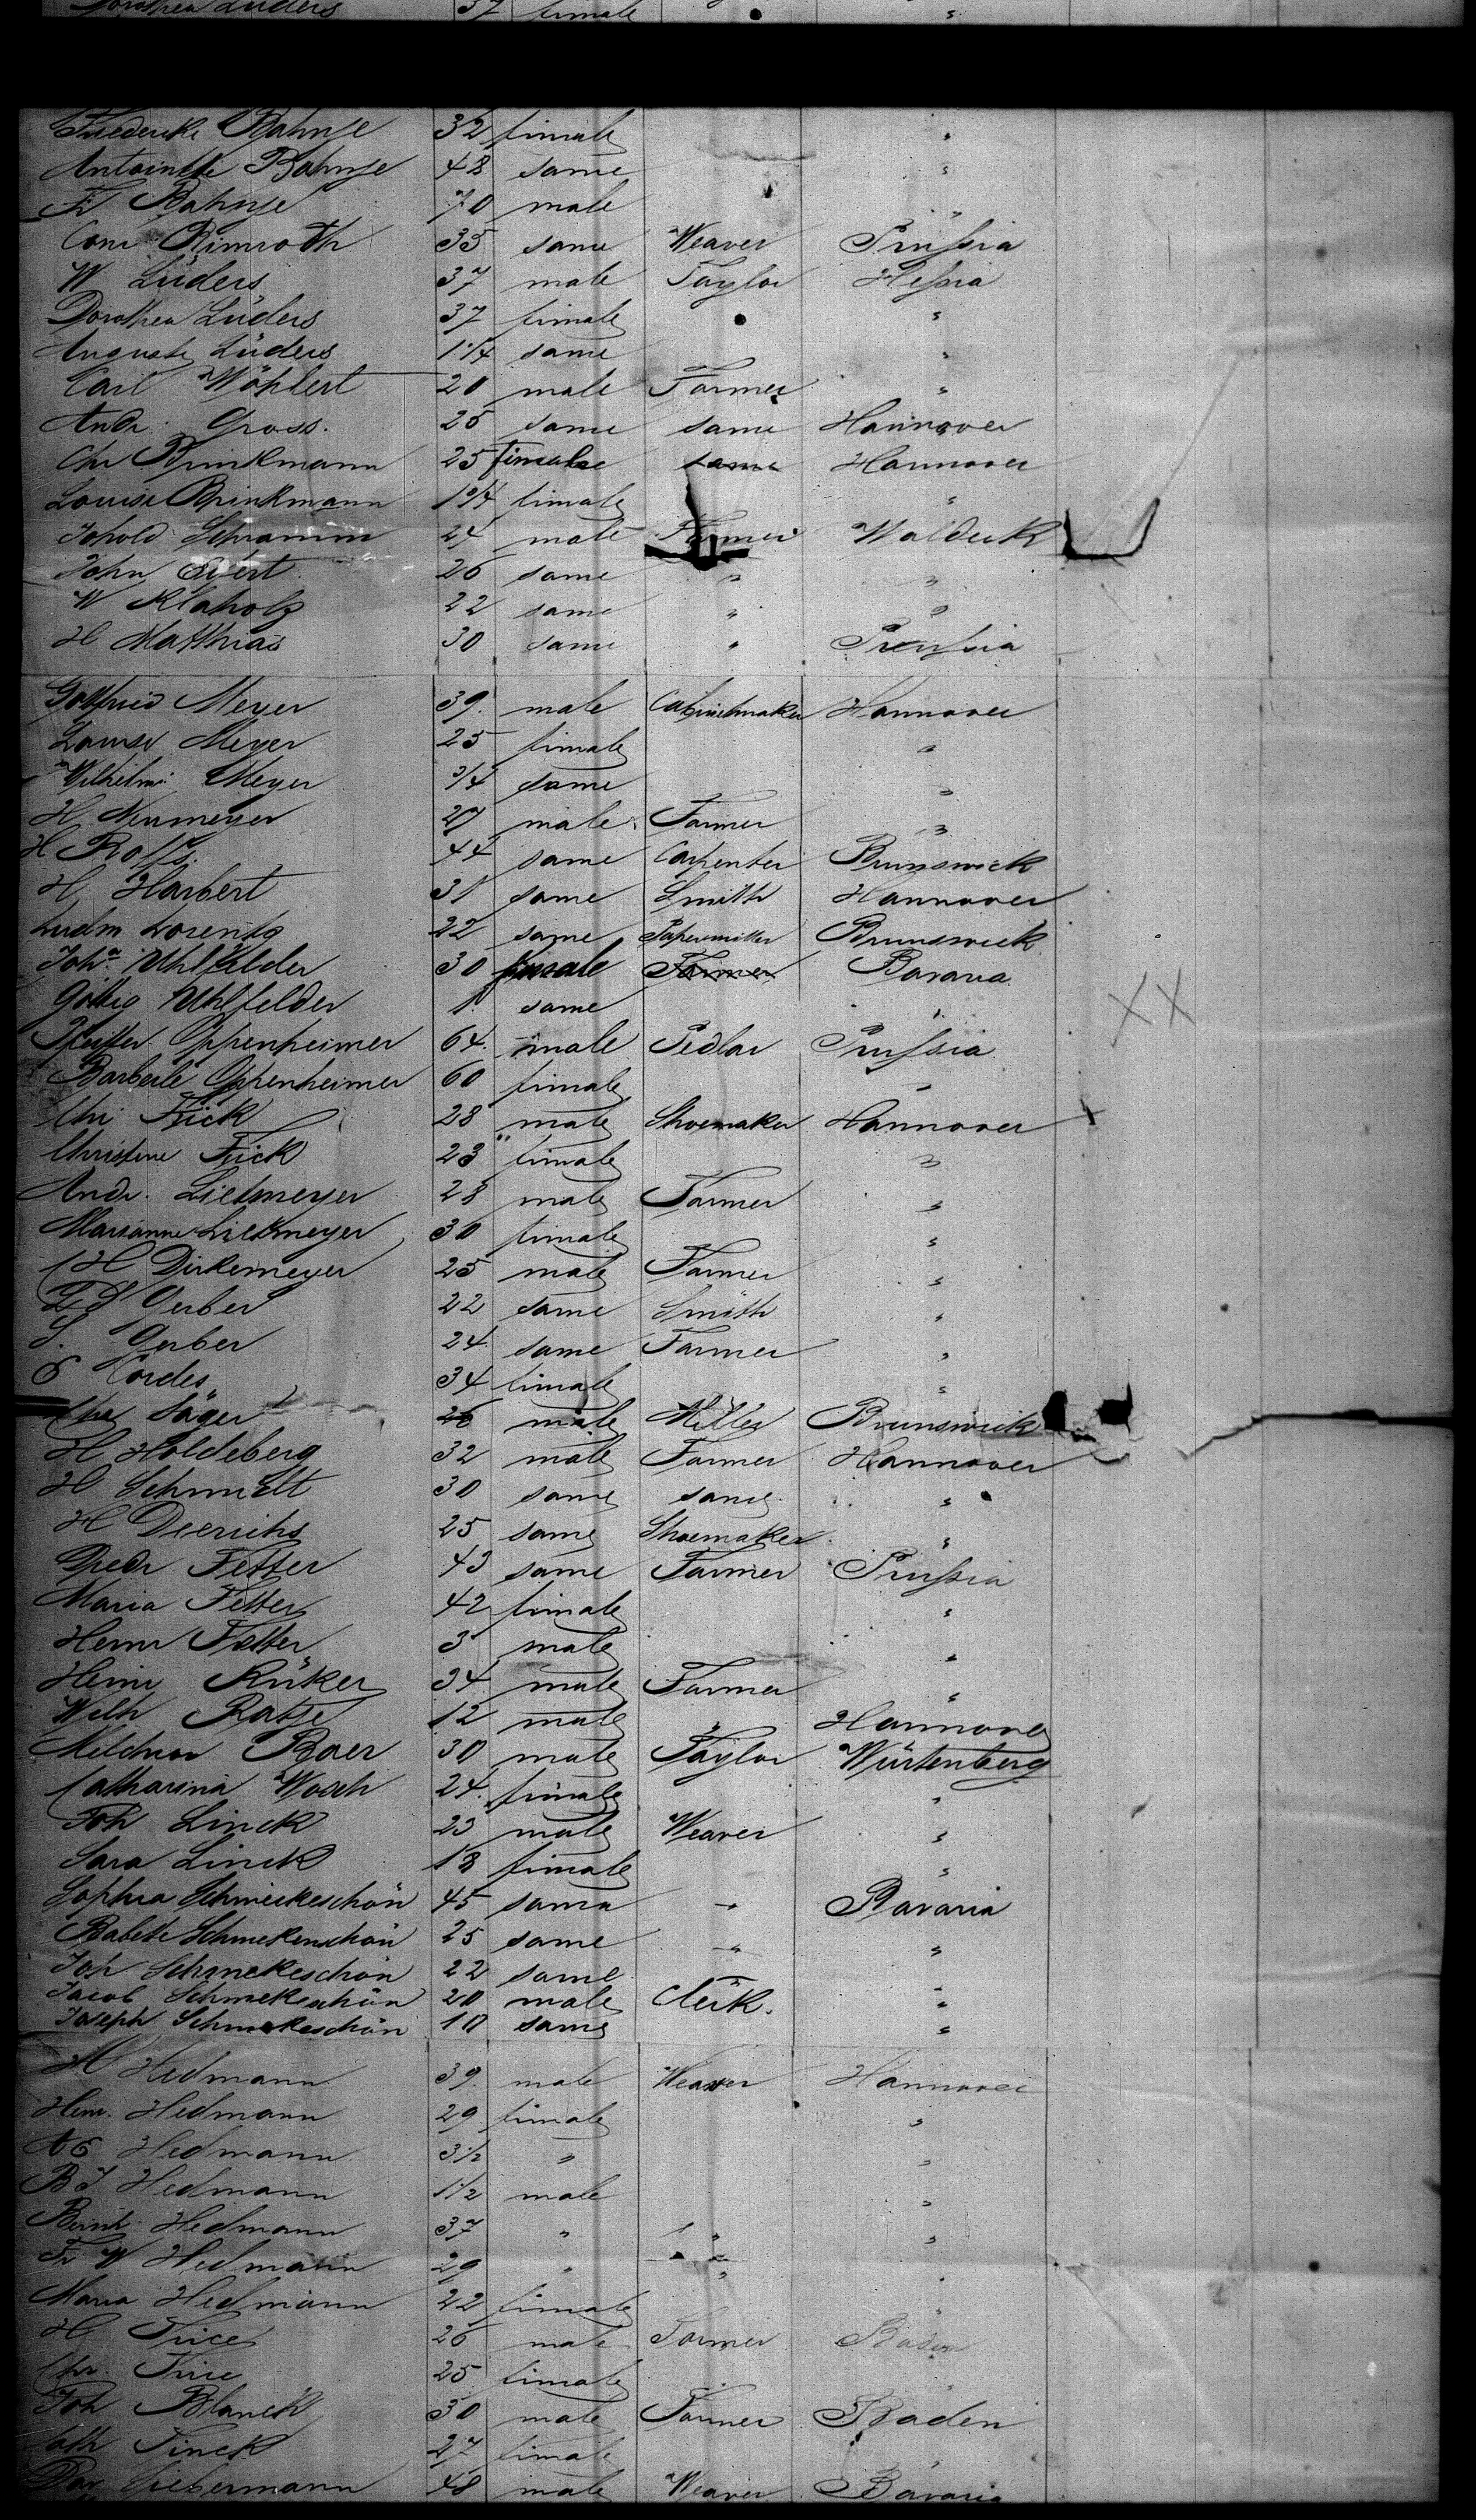 Dorothea Lüders 37 female "
Friedericke Bahnse 32 female "
Antoinette Bahnse 48 same "
Fr Bahnse 70 male "
Conr Rimroth 35 same Weaver Prussia
W Lüders 37 male Taylor Hessia
Dorothea Lüders 37 female "
Auguste Lüders 1 1/4 same "
Carl Wöhlert 20 male Farmer "
Andr. Gross. 25 same same Hannover
Chr Brinkmann 25 female same Hannover
Louise Brinkmann 1 3/4 female "
Schramm 24 male Farmer Waldeck
John Evert 26 same " "
W Klaholz 22 same " "
H Matthias 30 same " Preussia
Gottfried Meyer 39. male Cabinetmaker Hannover
Louise Meyer 25 female "
Wilhelm. Meyer 3/4 same "
H. Neumeyer 27 male Farmer "
H Rolfs. 44 same Carpenter Brunswick
H Harbert 31 same Smith Hannover
Ludm Lorentz 22 same Papermiller Brunswick
Joh. Uhlfelder 30 female Farmer Bavaria
Uhlfelder 1. same "
Pfeiffer Oppenheimer 64. male Pedlar Prussia
Barberle Oppenheimer 60 female "
Chr Frick 28 male Shoemaker Hannover
Christine Frick 23 female "
Andr. Lietmeyer 28 male Farmer "
Marianne Lietmeyer 30 female "
H Dirkemeyer 25 male Farmer "
Gerber 22 same Smith "
S. Gerber 24 same Farmer "
C Cordes 34 female "
Chr Säger 26 male Miller Brunswick
H Holdeberg 32 male Farmer Hannover
H Schmidt 30 same same "
H Dierichs 25 same Shoemaker "
Diedr Fetter 43 same Farmer Prussia
Maria Fetter 42 female "
Henr Fetter 3 male "
Heinr Rüker 34 male Farmer "
Wilh Ratze 12 male " Hannover
Melchior Baer 30 male Taylor Würtenberg
Catharina Wosch 24. female "
Joh Linck 23 male Weaver "
Sara Linck 18 female "
Sophia Schmeckeschön 45 same " Bavaria
Babette Schmekenschön 25 same " "
Joh Schmekeschön 22 same "
Jacob Schmekeschön 20 male Clerk. "
Joseph Schmekeschön 10 same "
H Hedmann 39. male Weaver Hannover
Henr. Hedmann 29 female "
Hedmann 3 1/2 " "
B J Hedmann 1 1/2 male "
Bernh Hedmann 37 " " "
Fr W Hedmann 29 " " "
Maria Hedmann 22 female "
H Frice 26 male Farmer Baden
Chr. Frice 25 female "
Joh Blanck 30 male Farmer Baden
Cath Finck 27 female "
Dav Liebermann 48 male Weaver Bavaria
XX